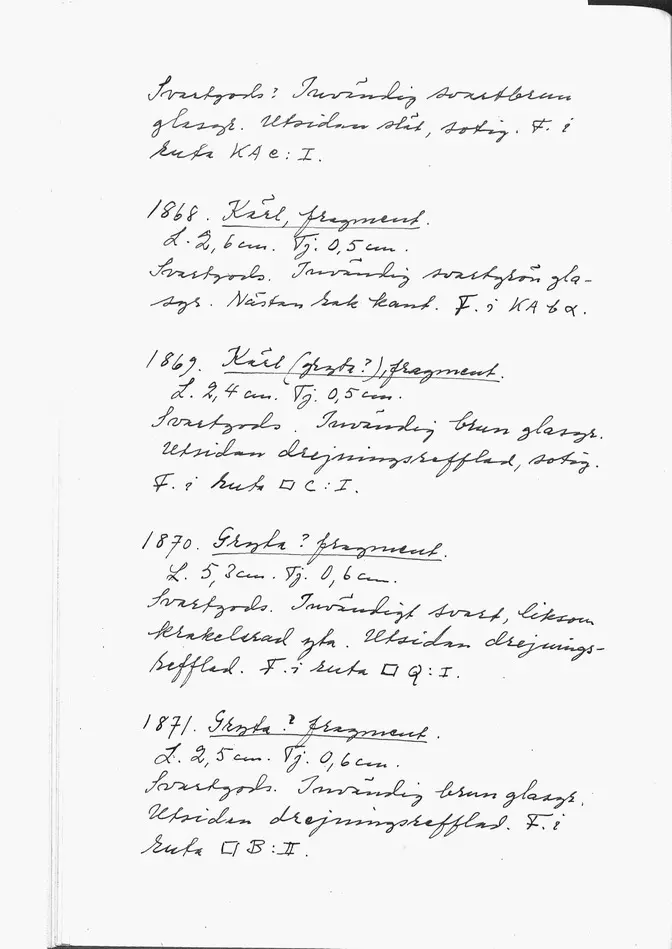 Svartgods? Invändig svartbrun
glasyr. Utsidan slät, sotig. F. i
ruta KA c : I.
1868. Kärl, fragment.
L. 2,6 cm. Tj. 0,5 cm.
Svartgods. Invändig svartgrön gla-
syr. Nästan rak kant. F. i KA b α.
1869. Kärl (gryta?), fragment.
L. 2,4 cm. Tj. 0,5 cm.
Svartgods. Invändig brun glasyr.
Utsidan drejningsrefflad, sotig.
F. i ruta □ C : I.
1870. Gryta? fragment.
L. 5,3 cm. Tj. 0,6 cm.
Svartgods. Invändigt svart, liksom
krakelerad yta. Utsidan drejnings-
refflad. F. i ruta □ Q : I.
1871. Gryta? fragment.
L. 2,5 cm. Tj. 0,6 cm.
Svartgods. Invändig brun glasyr.
Utsidan drejningsrefflad. F. i
ruta □ B : II.